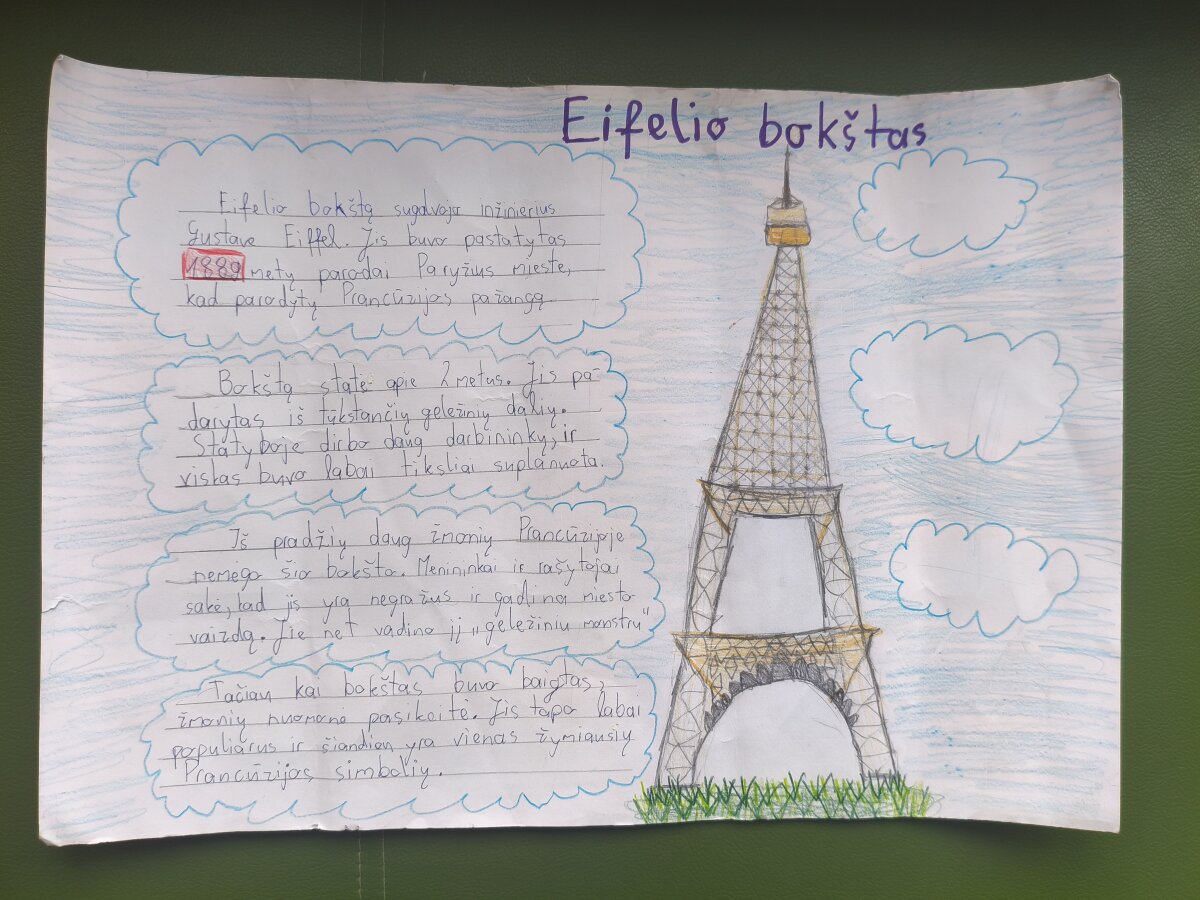 Eifelio bokštas
Eifelio bokštą sugalvojo inžinierius
Gustave Eiffel. Jis buvo pastatytas
1889 metų parodai Paryžius mieste,
kad parodytų Prancūzijos pažangą
Bokštą statė apie 2 metus. Jis pa-
darytas iš tūkstančių geležinių dalių.
Statyboje dirbo daug darbininkų, ir
viskas buvo labai tiksliai suplanuota.
Iš pradžių daug žmonių Prancūzijoje
nemėgo šio bokšto. Menininkai ir rašytojai
sakė, kad jis yra negražus ir gadina miesto
vaizdą. Jie net vadino jį „geležiniu monstru“
Tačiau kai bokštas buvo baigtas,
žmonių nuomonė pasikeitė. Jis tapo labai
populiarus ir šiandien yra vienas žymiausių
Prancūzijos simbolių.